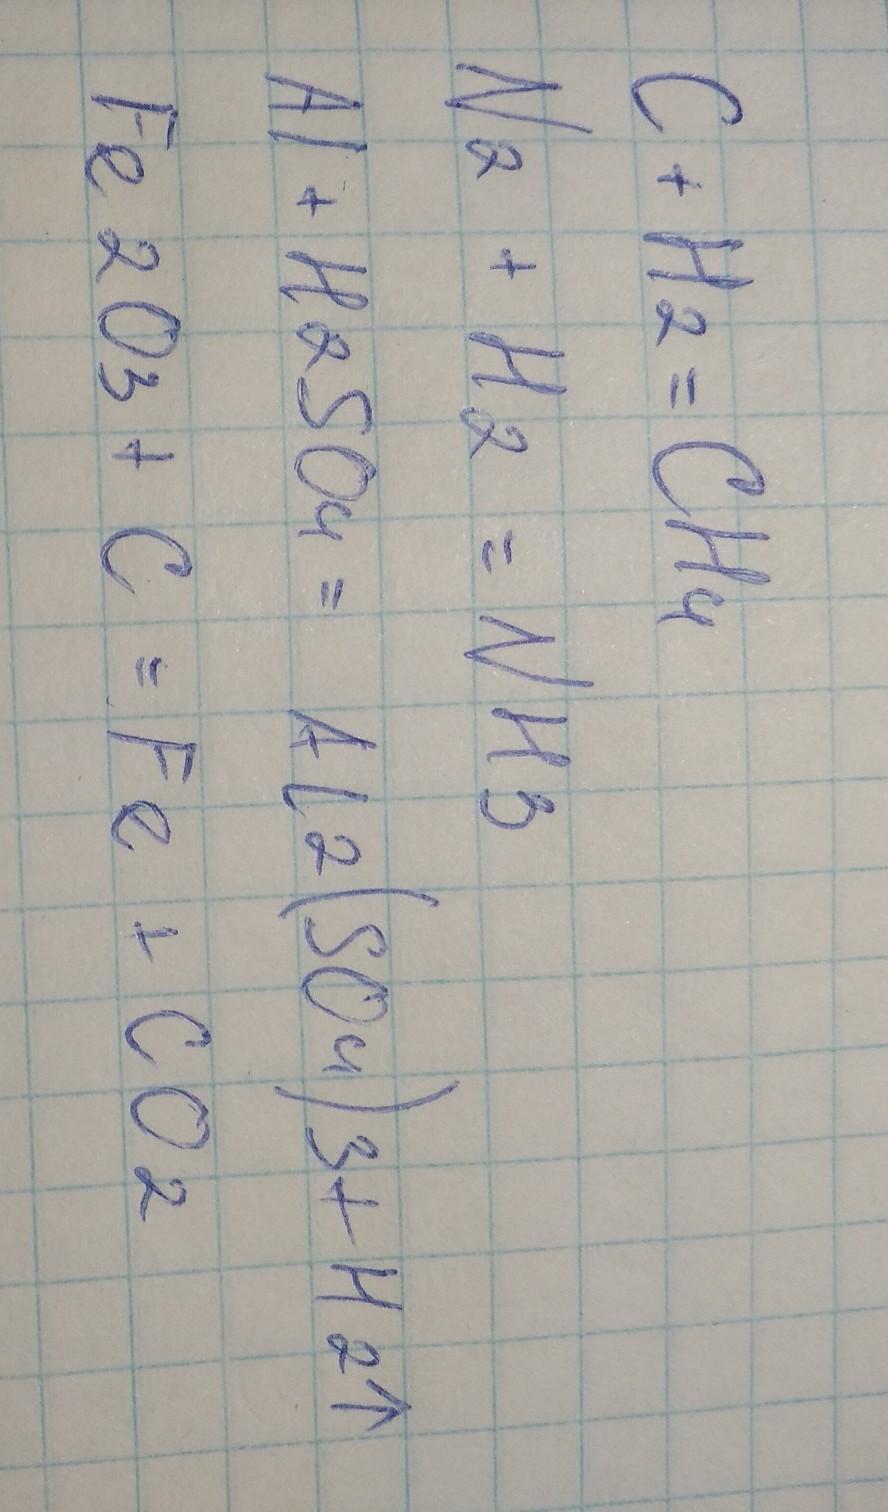 C + H2 = CH4
N2 + H2 = NH3
Al + H2SO4 = Al2(SO4)3 + H2↑
Fe2O3 + C = Fe + CO2